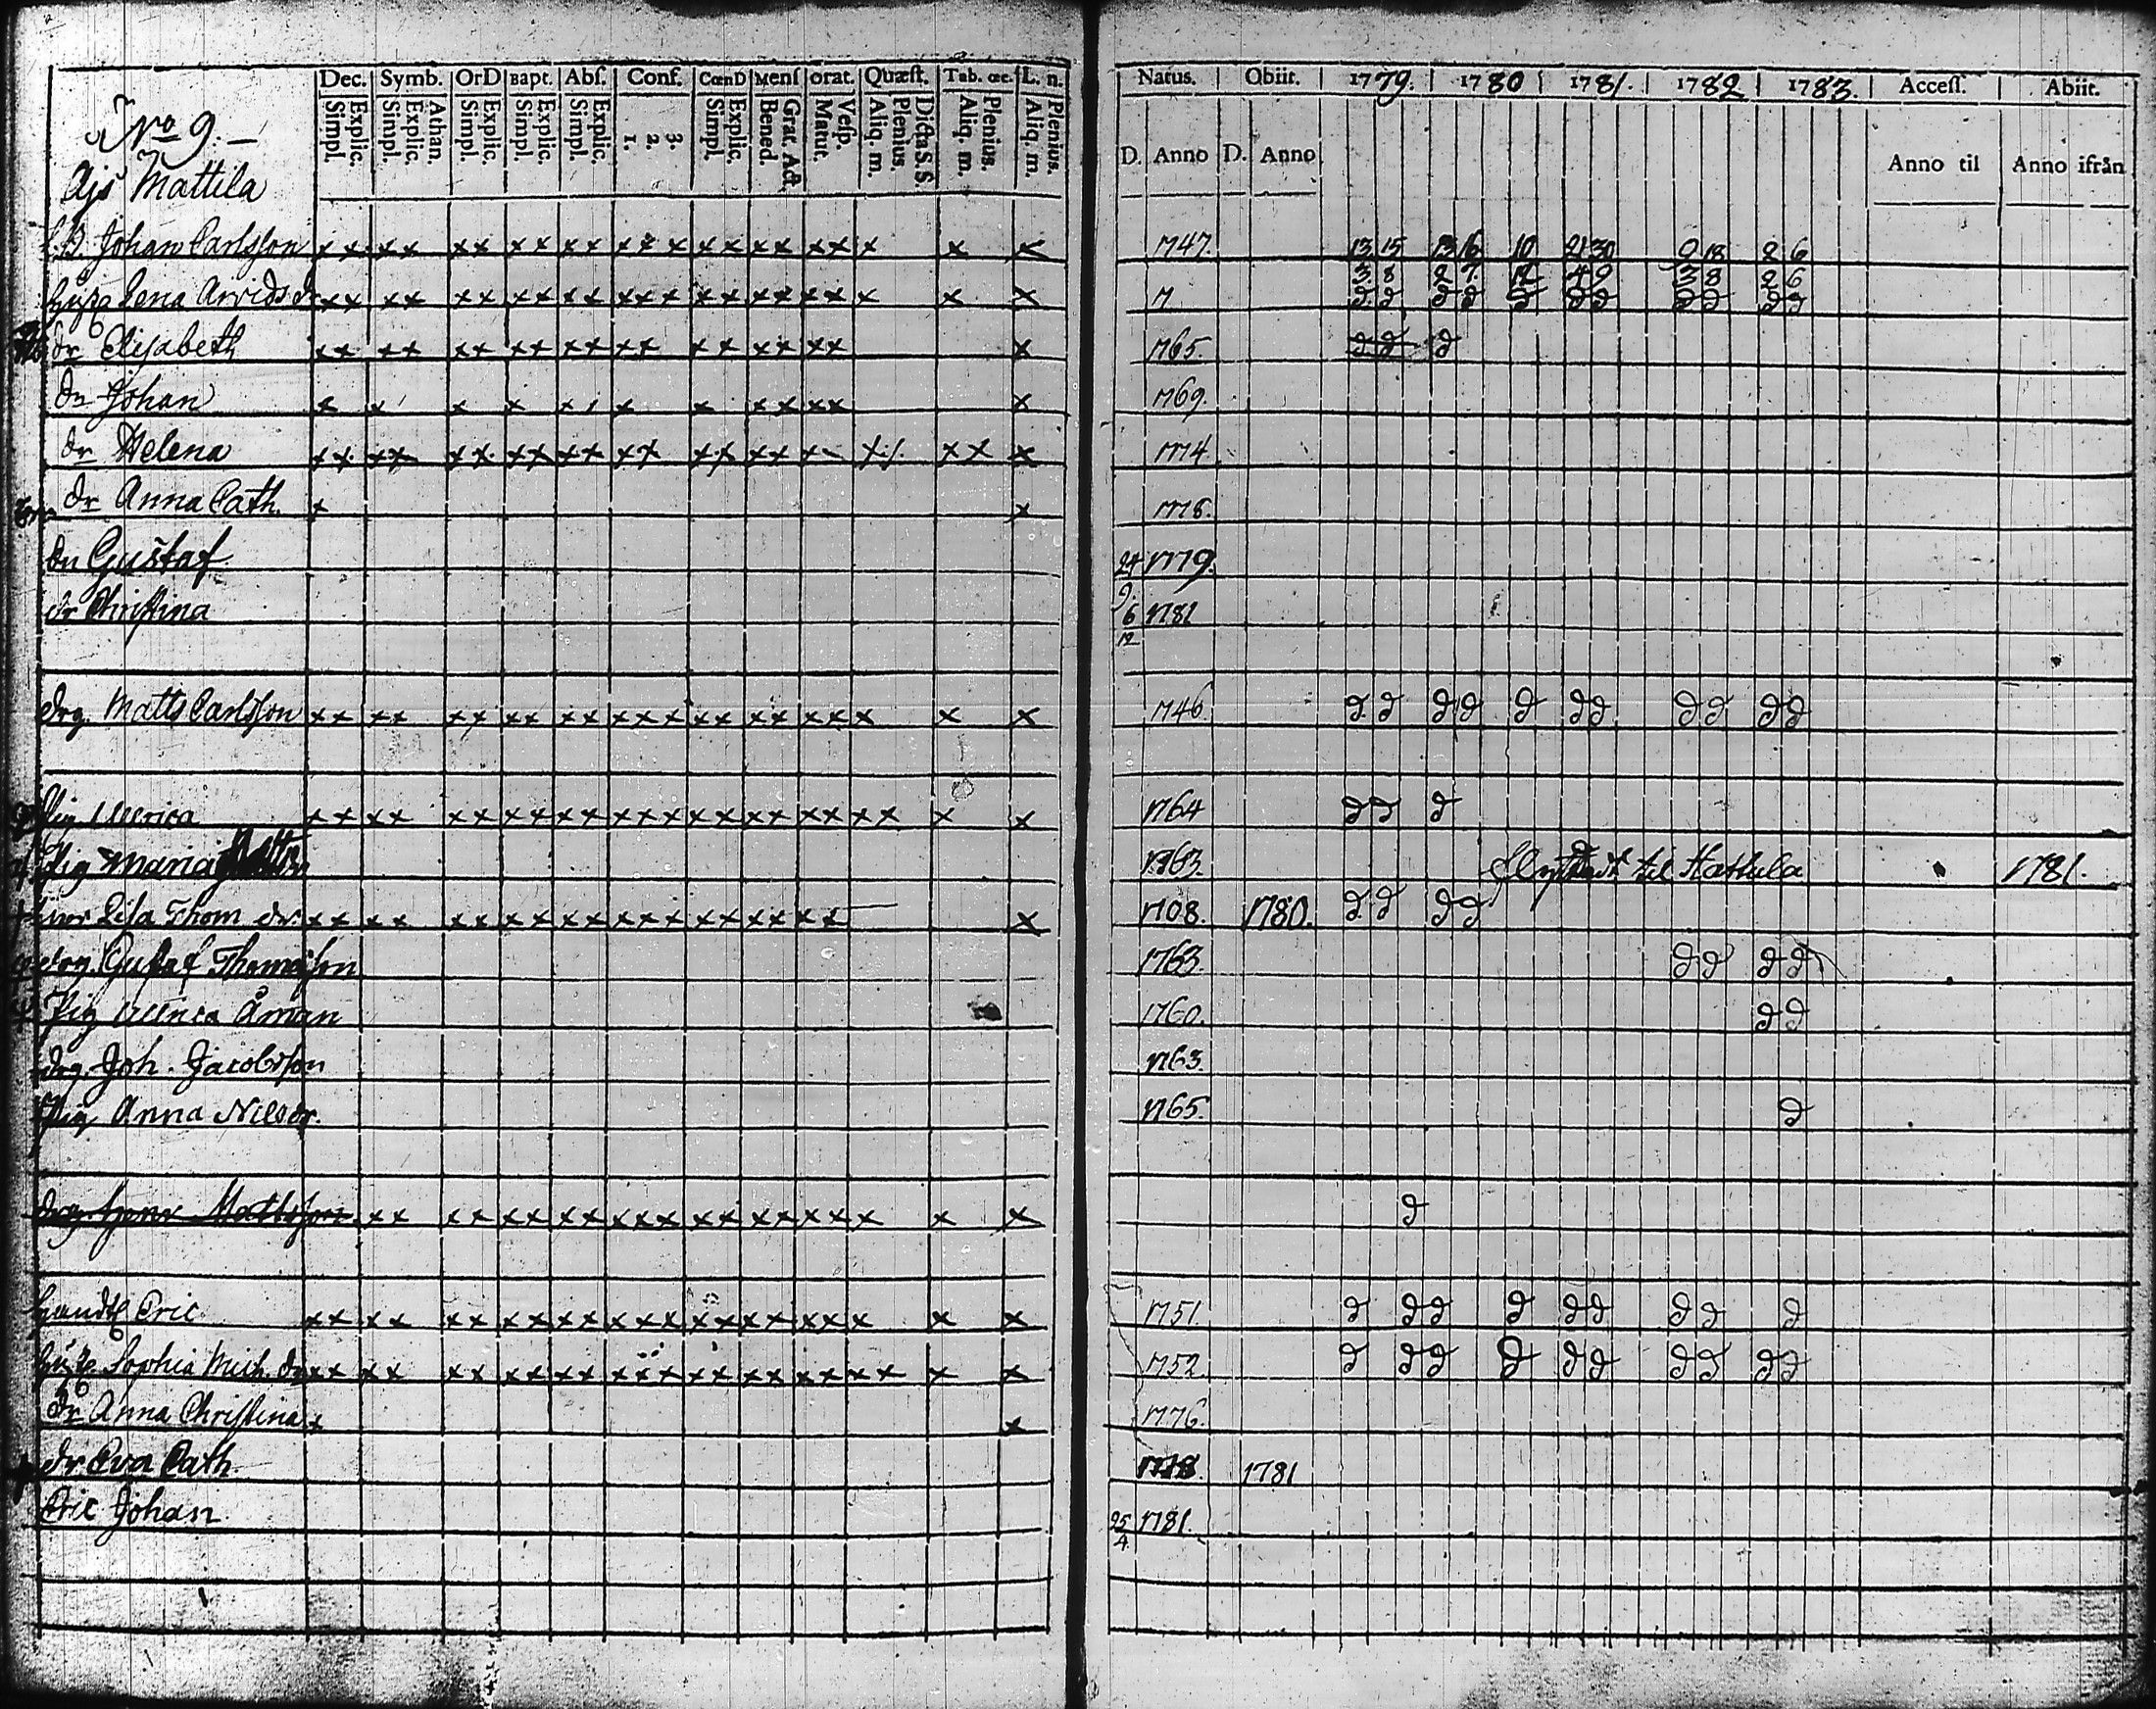 Dec. Symb. OrD Bapt. Abs. Conf. CœnD Mens orat. Quæst. Tab. œc. L. n.
Explic. Simpl. Athan. Explic. Simpl. Explic. Simpl. Explic. Simpl. Explic. Simpl. 3. 2. 1. Explic. Simpl. Grat. Act. Bened. Vesp. Matut. Dicta S.S. Plenius. Aliq. m. Plenius. Aliq. m. Plenius. Aliq. m.
Natus. Obiit. 1779. 1780 1781. 1782 1783. Access. Abiit.
D. Anno D. Anno Anno til Anno ifrån
No 9.
Ajs Mattila
Johan Carlsson x x x x x x x x x x x x x x x x x x x x x x 1747. 13 15 13 16 10 21 30 9 18 2 6
Lena Arvids dr x x x x x x x x x x x x x x x x x x x x x x 3 8 2 7 12 4 9 3 8 2 6
dr Elisabeth x x x x x x x x x x x x x x x x x x x 1765.
dn Johan x x x x x x x x x x x x 1769.
dr Helena x x x x x x x x x x x x x x x x x x x x x 1774.
dr Anna Cath. x x
dn Gustaf 24 9. 1779.
dr Christina 6 12 1781
drg. Matts Carlsson x x x x x x x x x x x x x x x x x x x x x x 1746
Ulerica x x x x x x x x x x x x x x x x x x x x x x x 1764
Pig Maria 1763. til Hattula 1781.
Lisa Thom. dr. x x x x x x x x x x x x x x x x x x x x 1708. 1780.
drg. Gustaf Thomasson 1763.
Pig Åman 1760.
drg. Joh. Jacobsson 1763.
Pig Anna Nils dr. 1765.
Mattsson x x x x x x x x x x x x x x x x x x x x
Eric x x x x x x x x x x x x x x x x x x x x x x 1751.
Sophia Mich. dr x x x x x x x x x x x x x x x x x x x x x x x 1752
dr Anna Christina x x 1776.
dr Eva Cath. 1781
Eric Johan 25 4. 1781.